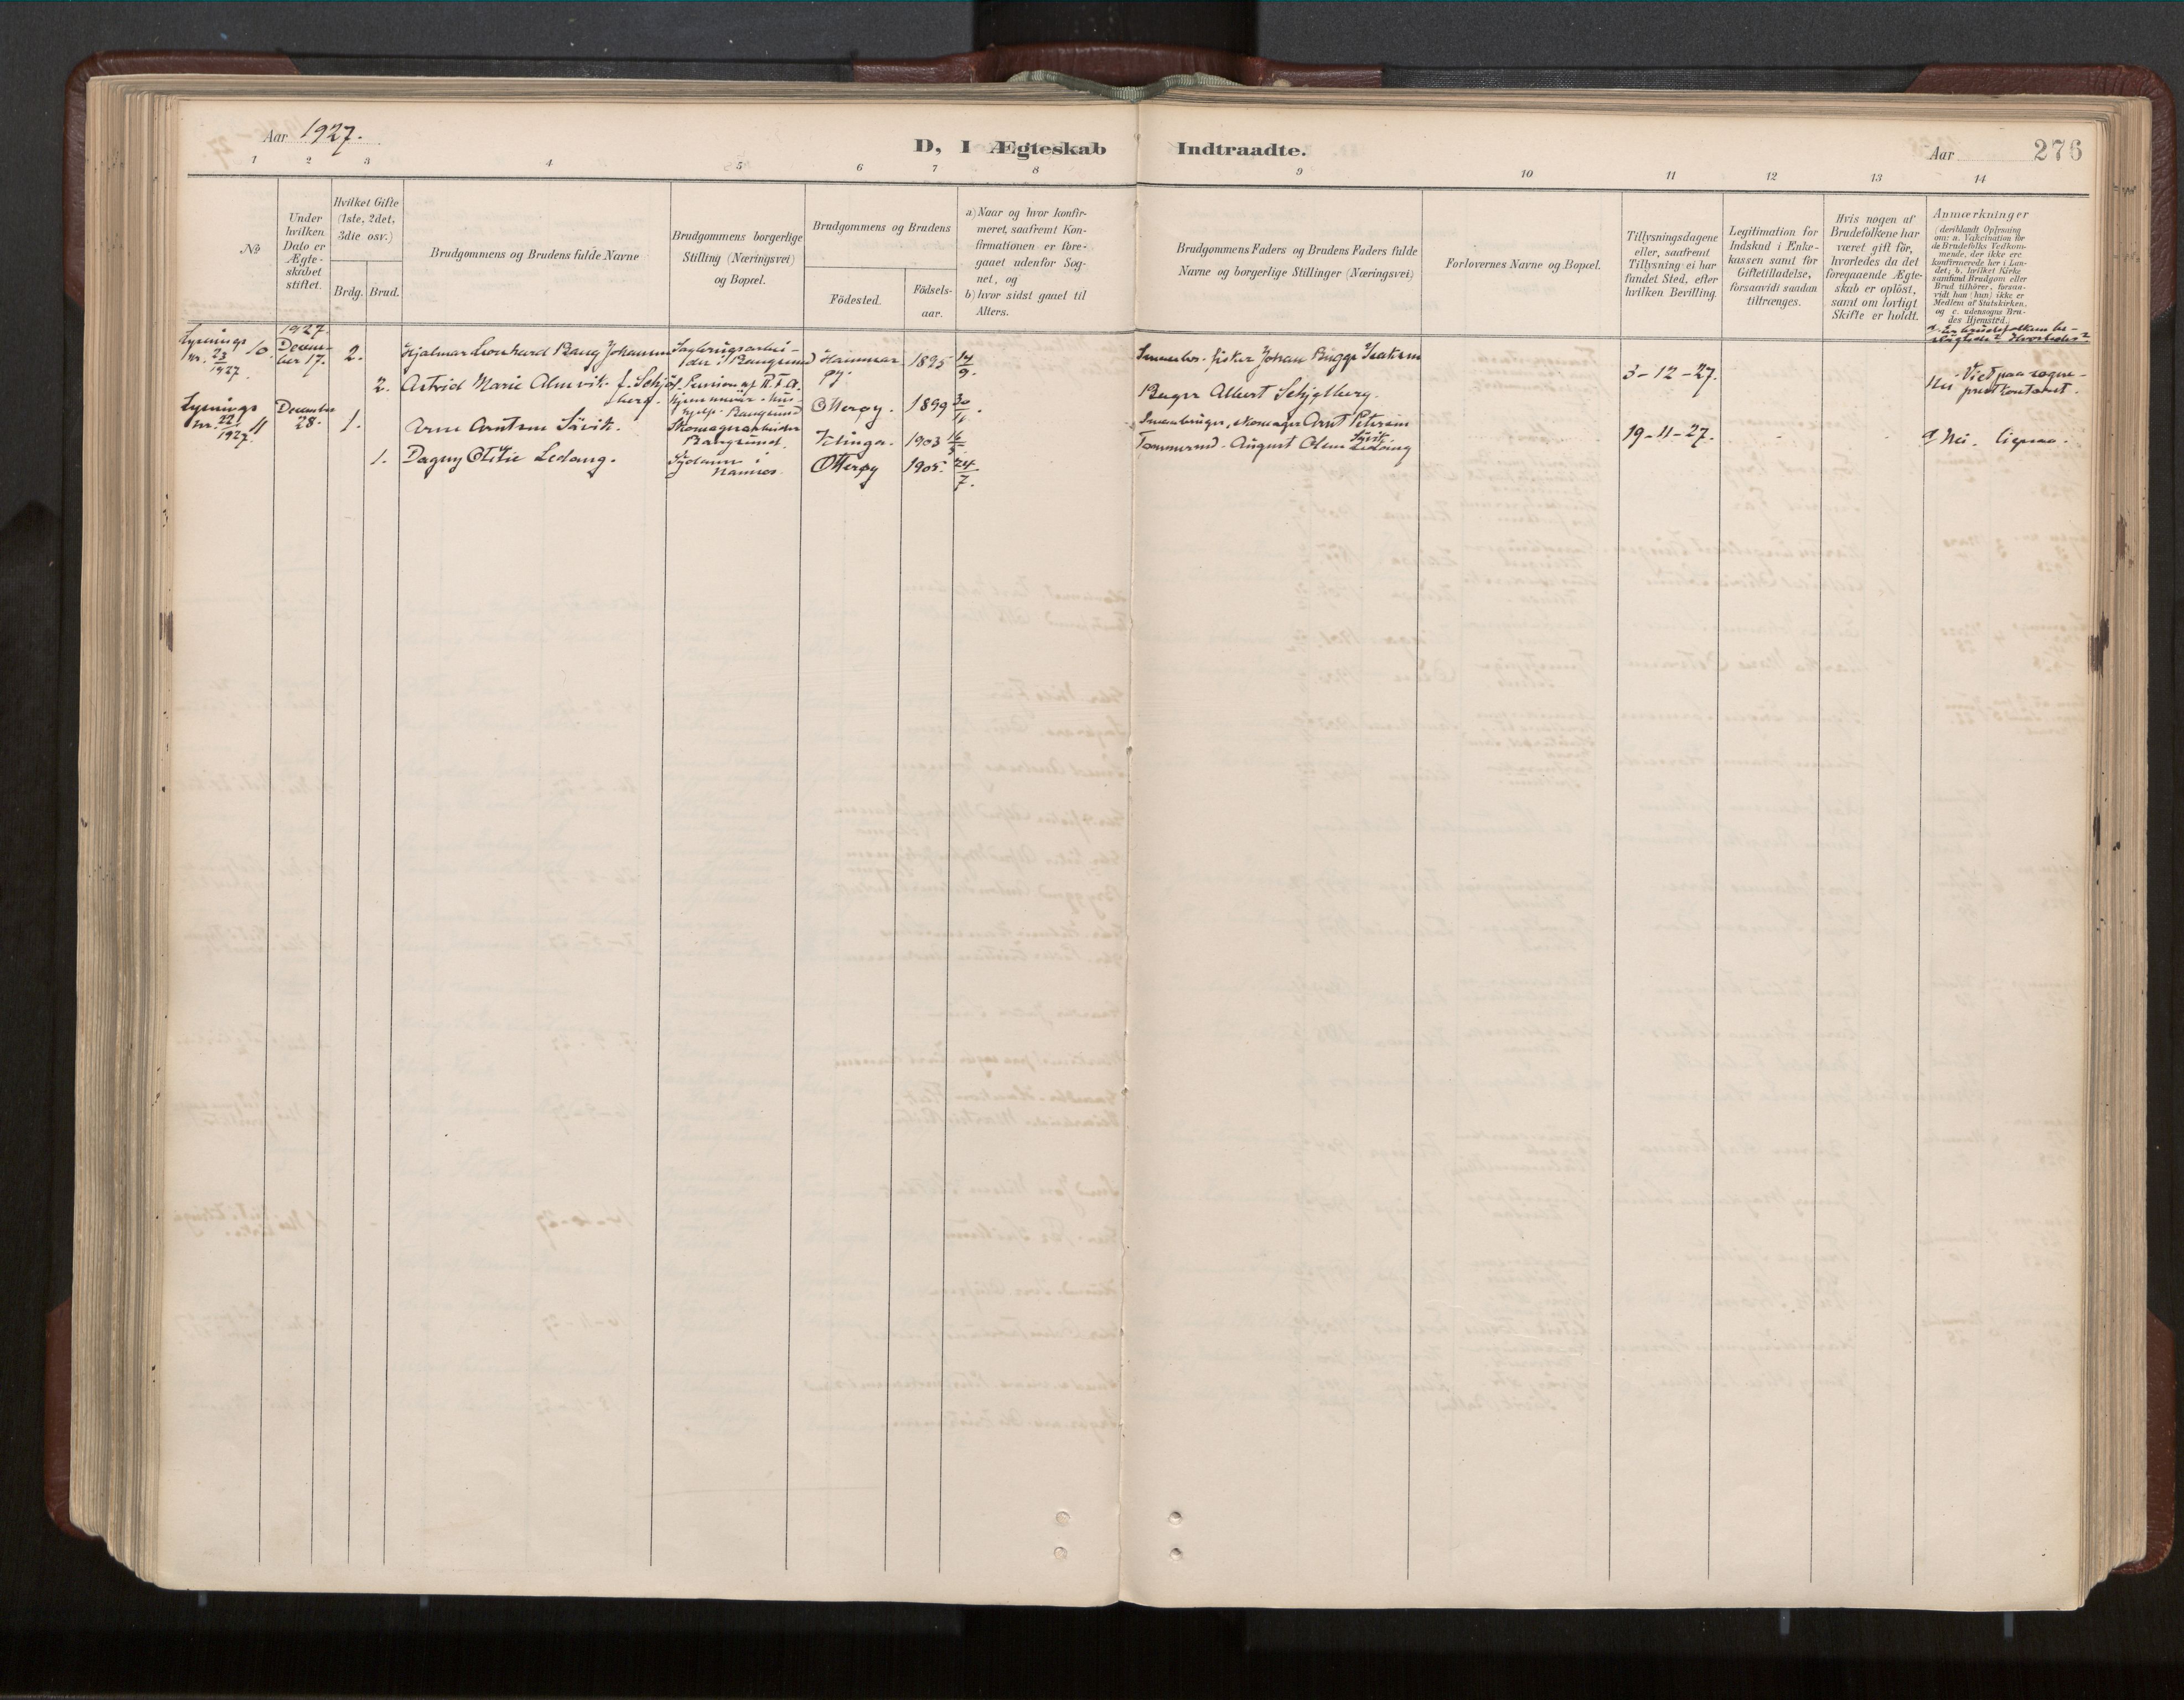 Aar 1927.
D, I Ægteskab Indtraadte.
Aar 276
1 2 3 4 5 6 7 8 9 10 11 12 13 14
No
Under hvilken Dato er Ægte-skabet stiftet.
Hvilket Gifte (1ste, 2det, 3die osv.)
Brdg. Brud.
Brudgommens og Brudens fulde Navne
Brudgommens borgerlige Stilling (Næringsvei) og Bopæl.
Brudgommens og Brudens
Fødested.
Fødsels-aar.
a) Naar og hvor konfir-
meret, saafremt Kon-
firmationen er fore-
gaaet udenfor Sog-
net, og
b) hvor sidst gaaet til
Alters.
Brudgommens Faders og Brudens Faders fulde
Navne og borgerlige Stillinger (Næringsvei)
Forlovernes Navne og Bopæl.
Tillysningsdagene
eller, saafremt
Tillysning ei har
fundet Sted, efter
hvilken Bevilling.
Legitimation for
Indskud i Enke-
kassen samt for
Giftetilladelse,
forsaavidt saadan
tiltrænges.
Hvis nogen af
Brudefolkene har
været gift før,
hvorledes da det
foregaaende Ægte-
skab er opløst,
samt om lovligt
Skifte er holdt.
Anmærkninger
(deriblandt Oplysning
om: a. Vakcination for
de Brudefolks Vedkom-
mende, der ikke ere
konfirmerede her i Lan-
det; b. hvilket Kirke
samfund Brudgom eller
Brud tilhører, forsaa-
vidt han (hun) ikke er
Medlem af Statskirken,
og c. udensogns Bru-
des Hjemsted.)
a. Er brudefolkene be-
slægtede? Hvorledes?
Lysnings nr. 23/1927 10. 1927. Decem-ber 17. 2. Hjalmar Leonhard Bang Johansen Sagbrugsarbei-der i Bangsund Hammar øy. 1895 14/9. fisker Johan Bugge Isaksen 3-12-27. Nei Viet paa sogne-prestkontoret.
2. Astrid Marie Almvik f. Schjølberg. Otterøy. 1899 30/11. Birger Albert Schjelberg.
Lysnings nr. 22/1927. 11 December 28. 1. Arne Arntsen Såvik. Skomagerarbeider Bangsund. Klinga. 1903 16/3 skomager Arnt Petersen Såvik 19-11-27. - - a Nei. Ligesaa.
1. Dagny Otilie Ledang. Sydame i Namsos. Otterøy 1905. 24/7. Tømmermd. August Olsen Ledang